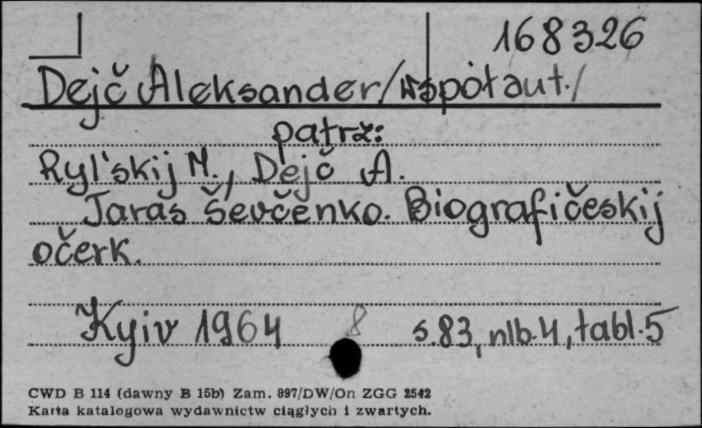 168326
Dejč Aleksander/współaut./
patrz:
Ryl'skij M., Dejč A.
Taras Ševčenko. Biografičeskij
očerk.
Kyiv 1964 8 s.83, nlb.4, tabl.5
CWD B 114 (dawny B 15b) Zam. 897/DW/On ZGG 2542
Karta katalogowa wydawnictw ciągłych i zwartych.